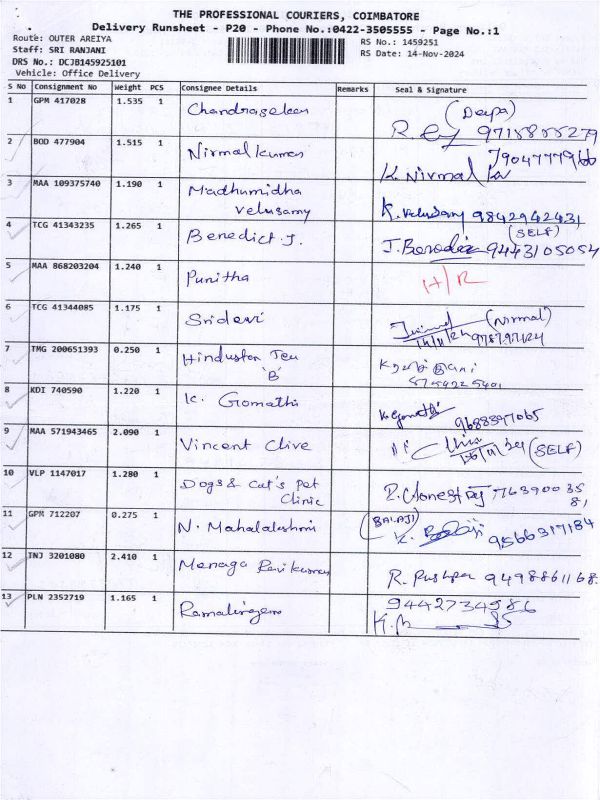 THE PROFESSIONAL COURIERS, COIMBATORE
Delivery Runsheet - P20 - Phone No.:0422-3505555 - Page No.:1
Route: OUTER AREIYA
Staff: SRI RANJANI
RS No.: 1459251
DRS No.: DCJB145925101
RS Date: 14-Nov-2024
Vehicle: Office Delivery
S No Consignment No Weight PCS Consignee Details Remarks Seal & Signature
1 GPM 417028 1.535 1 Chandrasekar (Deepa)
2 BOD 477904 1.515 1 Nirmalkumar
K. Nirmal
3 MAA 109375740 1.190 1 Madhumidha
velusamy K. Velusamy 9842942431
4 TCG 41343235 1.265 1 Benedict J. (SELF)
9443105054
5 MAA 868203204 1.240 1 Punitha H/R
6 TCG 41344085 1.175 1 Sridevi (Nirmal)
7 TMG 200651393 0.250 1 Hinduston Tea
'B'
8 KDI 740590 1.220 1 K. Gomathi 9688397065
9 MAA 571943465 2.090 1 Vincent Clive (SELF)
10 VLP 1147017 1.280 1 Dogs & Cat's Pet
Clinic
11 GPM 712207 0.275 1 N. Mahalakshmi (BALAJI) 9566317184
12 TNJ 3201080 2.410 1 Menaga Ravikumar R. Pushpa
13 PLN 2352719 1.165 1 Ramalingam 9442734586